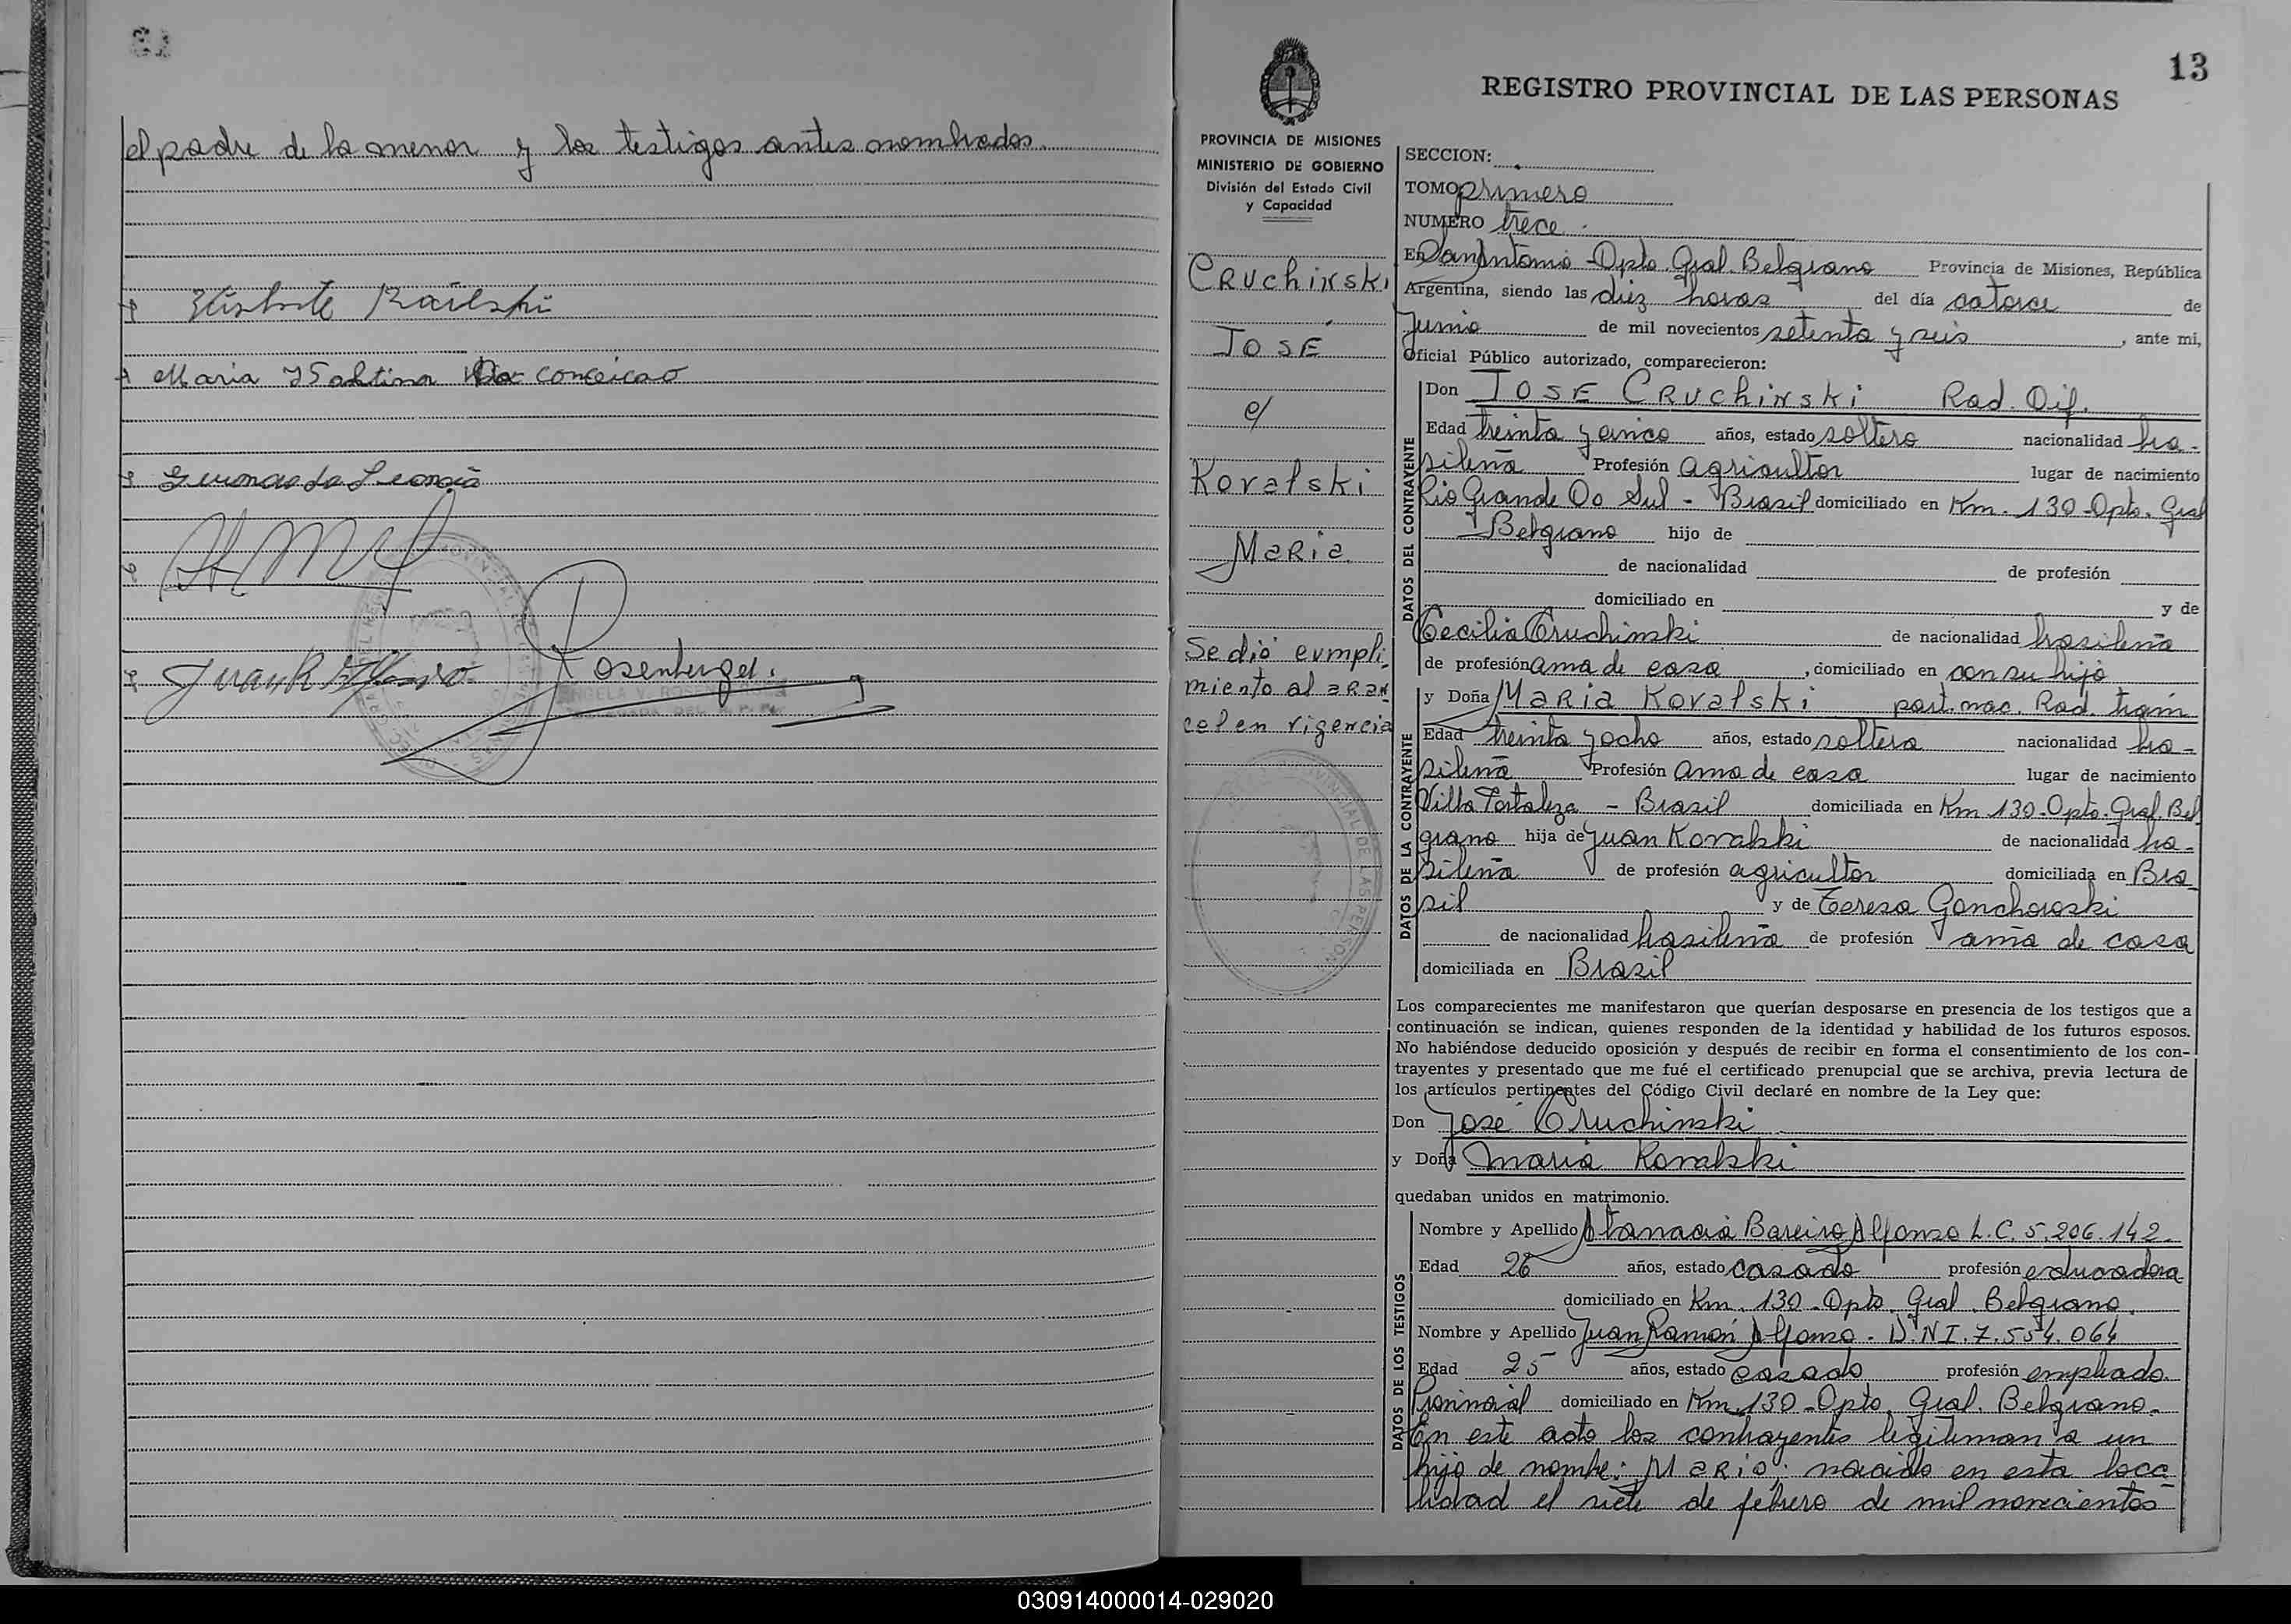 el padre de la menor y los testigos antes nombrados.
Maria Da conceicao
Juan R Alfonso
Rosenberger.
13
REGISTRO PROVINCIAL DE LAS PERSONAS
PROVINCIA DE MISIONES
MINISTERIO DE GOBIERNO
División del Estado Civil
y Capacidad
Cruchinski
José
c/
Kovalski
Maria
Se dió cumpli-
miento al aran
cel en vigencia
SECCION:
TOMO primero
NUMERO trece
En San Antonio - Dpto. Gral. Belgrano Provincia de Misiones, República
Argentina, siendo las diez horas del día catorce de
Junio de mil novecientos setenta y seis, ante mi,
Oficial Público autorizado, comparecieron:
DATOS DEL CONTRAYENTE
Don José Cruchinski Rad. Dif.
Edad treinta y cinco años, estado soltero nacionalidad bra-
sileña Profesión agricultor lugar de nacimiento
Rio Grande Do Sul - Brasil domiciliado en Km. 130 - Dpto. Gral
Belgrano hijo de
de nacionalidad de profesión
domiciliado en y de
Cecilia Cruchinski de nacionalidad brasileña
de profesión ama de casa, domiciliado en con su hijo
DATOS DE LA CONTRAYENTE
y Doña Maria Kovalski part. nac. Rad. trám
Edad treinta y ocho años, estado soltera nacionalidad bra-
sileña Profesión ama de casa lugar de nacimiento
Villa Fortaleza - Brasil domiciliada en Km 130 - Dpto. Gral. Bel
grano hija de Juan Kovalski de nacionalidad bra-
sileña de profesión agricultor domiciliada en Bra
sil y de Teresa Gonchoroski
de nacionalidad brasileña de profesión ama de casa
domiciliada en Brasil
Los comparecientes me manifestaron que querían desposarse en presencia de los testigos que a
continuación se indican, quienes responden de la identidad y habilidad de los futuros esposos.
No habiéndose deducido oposición y después de recibir en forma el consentimiento de los con-
trayentes y presentado que me fué el certificado prenupcial que se archiva, previa lectura de
los artículos pertinentes del Código Civil declaré en nombre de la Ley que:
Don José Cruchinski
y Doña Maria Kovalski
quedaban unidos en matrimonio.
DATOS DE LOS TESTIGOS
Nombre y Apellido Atanacia Bareiro Alfonso L.C. 5.206.142.
Edad 26 años, estado casado profesión educadora
domiciliado en Km. 130 - Dpto. Gral. Belgrano.
Nombre y Apellido Juan Ramón Alfonso - D.N.I. 7.554.064
Edad 25 años, estado casado profesión empleado
Provincial domiciliado en Km. 130 - Dpto. Gral. Belgrano.
En este acto los contrayentes legitiman a un
hijo de nombre: Mario; nacido en esta loca
lidad el siete de febrero de mil novecientos
030914000014-029020